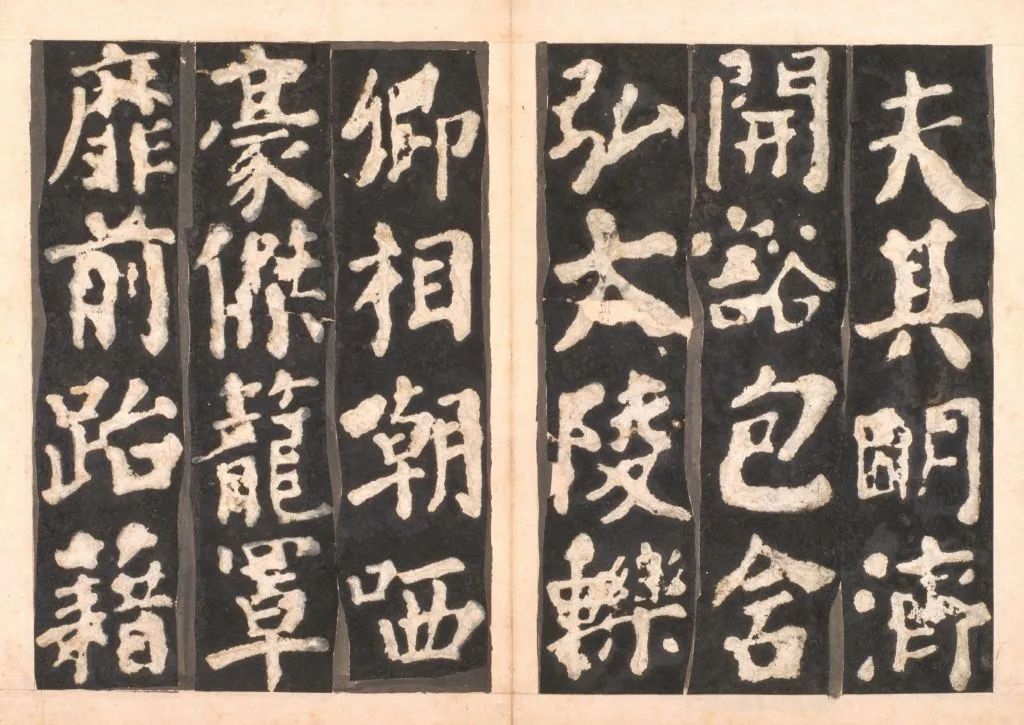 夫其明濟
開豁包含
弘大陵轢
卿相嘲哂
豪傑籠罩
靡前跆籍